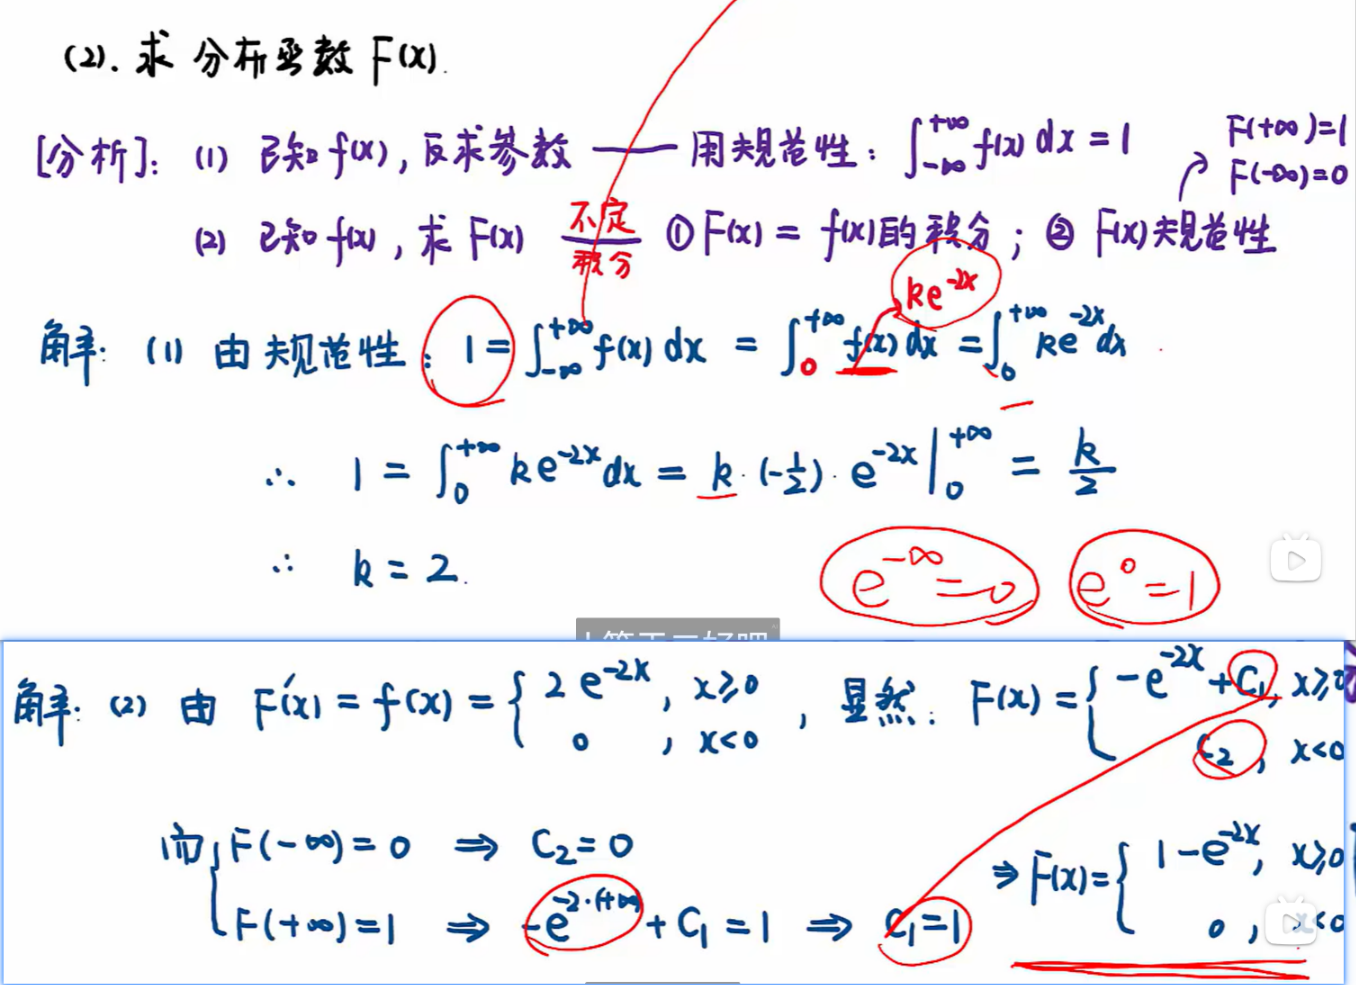 (2). 求 分布函数 F(x).
[分析]: (1) 已知 f(x), 反求参数 —— 用规范性: ∫_{-∞}^{+∞} f(x) dx = 1 F(+∞)=1
F(-∞)=0
(2) 已知 f(x), 求 F(x) 不定积分 ① F(x) = f(x)的积分; ② F(x)规范性
ke^{-2x}
解: (1) 由规范性: 1 = ∫_{-∞}^{+∞} f(x) dx = ∫_0^{+∞} f(x) dx = ∫_0^{+∞} ke^{-2x} dx
∴ 1 = ∫_0^{+∞} ke^{-2x} dx = k·(-1/2)·e^{-2x} |_0^{+∞} = k/2
∴ k = 2.
e^{-∞} = 0 e^0 = 1
解: (2) 由 F'(x) = f(x) = { 2e^{-2x}, x≥0 , 显然: F(x) = { -e^{-2x} + C₁, x≥0
0 , x<0 C₂, x<0
而 { F(-∞) = 0 ⇒ C₂ = 0 ⇒ F(x) = { 1-e^{-2x}, x≥0
F(+∞) = 1 ⇒ -e^{-2·(+∞)} + C₁ = 1 ⇒ C₁ = 1 0, x<0